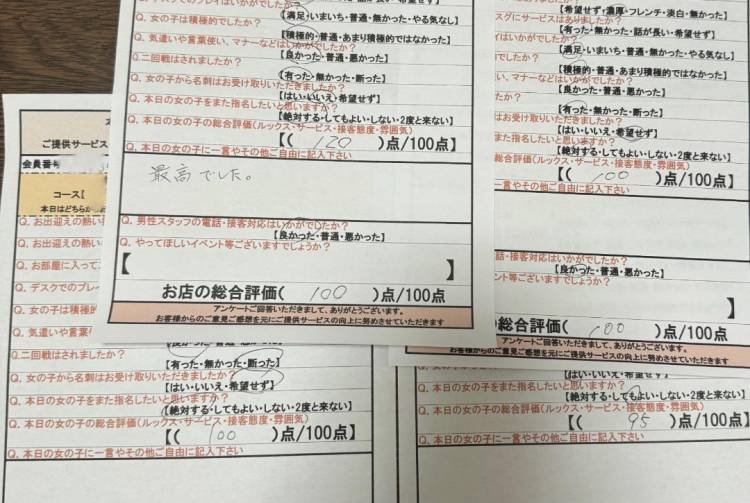 Q. 女の子は積極的でしたか?
【満足・いまいち・普通・無かった・やる気なし】
Q. 気遣いや言葉使い、マナーなどはいかがでしたか?
【積極的・普通・あまり積極的ではなかった】
【良かった・普通・悪かった】
Q.二回戦はされましたか?
【有った・無かった・断った】
Q. 女の子から名刺はお受け取りいただきましたか?
【はい・いいえ・希望せず】
Q. 本日の女の子をまた指名したいと思いますか?
【絶対する・してもよい・しない・2度と来ない】
Q. 本日の女の子の総合評価(ルックス・サービス・接客態度・雰囲気)
【( 120 )点/100点】
Q. 本日の女の子に一言やその他ご自由に記入下さい
最高でした。
Q. 男性スタッフの電話・接客対応はいかがでしたか?
【良かった・普通・悪かった】
Q. やってほしいイベント等ございますでしょうか?
【 】
お店の総合評価( 100 )点/100点
アンケートご回答いただきまして、ありがとうございます。
お客様からのご意見ご感想を元にご提供サービスの向上に努めさせていただきます
【希望せず・濃厚・フレンチ・淡白・無かった】
スクにサービスはありましたか?
【有った・無かった・話が長い・希望せず】
はいかがでしたか?
【満足・いまいち・普通・無かった・やる気なし】
い、マナーなどはいかがでしたか?
【積極的・普通・あまり積極的ではなかった】
【良かった・普通・悪かった】
たか?
【有った・無かった・断った】
はお受け取りいただきましたか?
【はい・いいえ・希望せず】
また指名したいと思いますか?
【絶対する・してもよい・しない・2度と来ない】
総合評価(ルックス・サービス・接客態度・雰囲気)
【( 100 )点/100点】
一言やその他ご自由に記入下さい
話・接客対応はいかがでしたか?
【良かった・普通・悪かった】
ント等ございますでしょうか?
】
総合評価( 100 )点/100点
アンケートご回答いただきまして、ありがとうございます。
お客様からのご意見ご感想を元にご提供サービスの向上に努めさせていただきます
ご提供サービス
会員番号
コース【
本日はどちらか
Q. お出迎えの熱い
Q. お出迎えの熱い
Q. お部屋に入って
Q. デスクでのプレイ
Q. 女の子は積極的
Q. 気遣いや言葉使
Q.二回戦はされましたか?
【有った・無かった・断った】
Q. 女の子から名刺はお受け取りいただきましたか?
【はい・いいえ・希望せず】
Q. 本日の女の子をまた指名したいと思いますか?
【絶対する・してもよい・しない・2度と来ない】
Q. 本日の女の子の総合評価(ルックス・サービス・接客態度・雰囲気)
【( 100 )点/100点】
Q. 本日の女の子に一言やその他ご自由に記入下さい
Q. 女の子から名刺はお受け取りいただきましたか?
【はい・いいえ・希望せず】
Q. 本日の女の子をまた指名したいと思いますか?
【絶対する・してもよい・しない・2度と来ない】
Q. 本日の女の子の総合評価(ルックス・サービス・接客態度・雰囲気)
【( 95 )点/100点】
Q. 本日の女の子に一言やその他ご自由に記入下さい